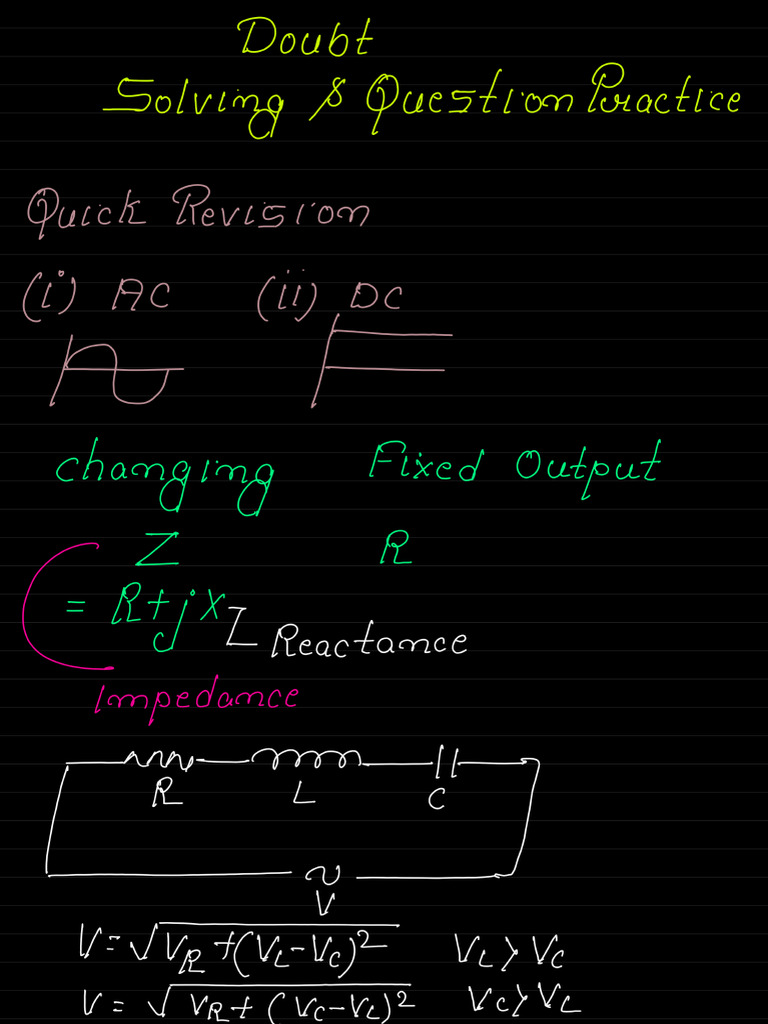 Doubt
Solving & Question Practice
Quick Revision
(i) AC (ii) DC
changing Fixed Output
Z R
= R+jX
Reactance
Impedance
R L C
V
V = √VR + (VL - VC)² VL > VC
V = √VR + (VC - VL)² VC > VL